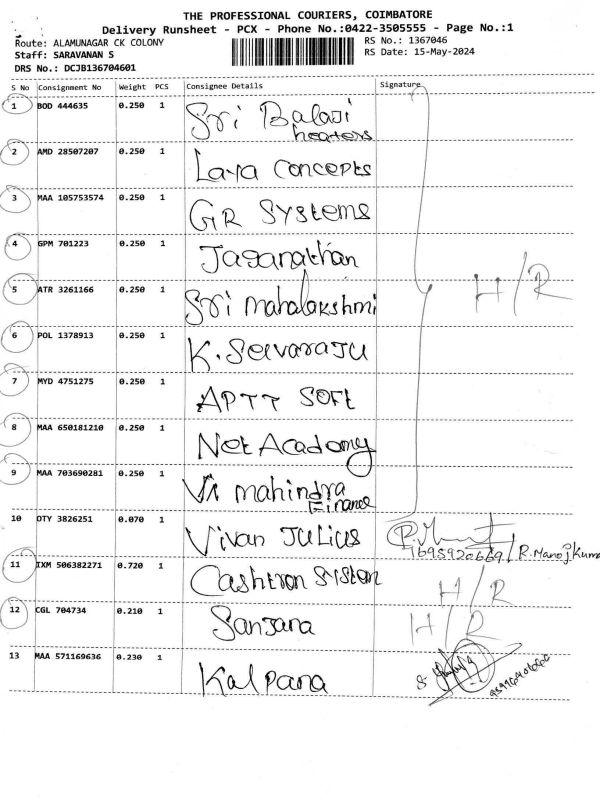 THE PROFESSIONAL COURIERS, COIMBATORE
Delivery Runsheet - PCX - Phone No.:0422-3505555 - Page No.:1
Route: ALAMUNAGAR CK COLONY
RS No.: 1367046
Staff: SARAVANAN S
RS Date: 15-May-2024
DRS No.: DCJB136704601
S No Consignment No Weight PCS Consignee Details Signature
1 BOD 444635 0.250 1 Sri Balaji
heaters
2 AMD 28507207 0.250 1 Laya Concepts
3 MAA 105753574 0.250 1 GR Systems
4 GPM 701223 0.250 1 Jaganathan
5 ATR 3261166 0.250 1 Sri mahalakshmi H/R
6 POL 1378913 0.250 1 K. Selvaraju
7 MYD 4751275 0.250 1 APTT SOFt
8 MAA 650181210 0.250 1 Net Academy
9 MAA 703690281 0.250 1 mahindra
Finance
10 OTY 3826251 0.070 1 Vivan Julius
R.Manoj Kuma
11 IXM 506382271 0.720 1 Cashtron System H/R
12 CGL 704734 0.210 1 Sanjana H/R
13 MAA 571169636 0.230 1 Kalpana